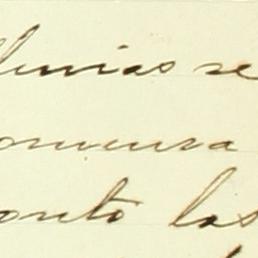 lluvias se
comienza
pronto las